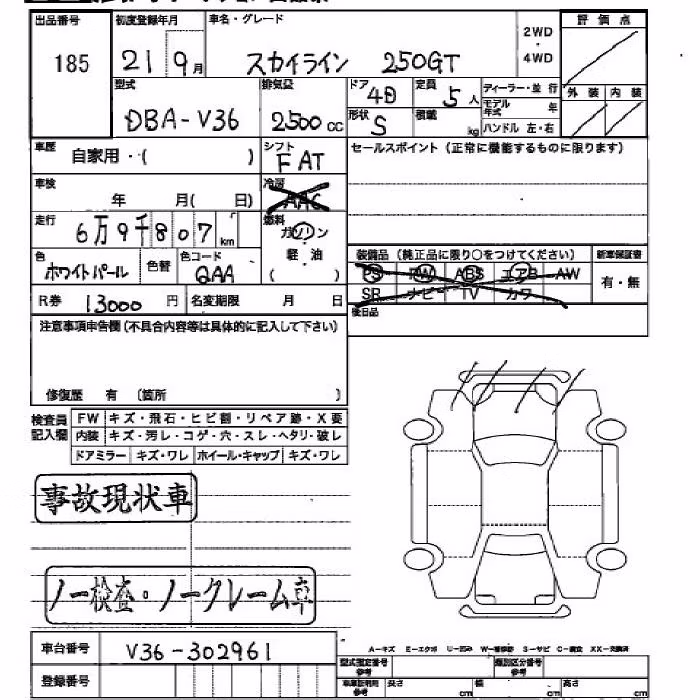 出品番号 初度登録年月 車名・グレード 2WD・4WD 評価点
185 21 9月 スカイライン 250GT
型式 排気量 ドア 4D 定員 5人 ディーラー・並行 外装 内装
DBA-V36 2500cc 形状 S 積載 kg モデル年式 年
ハンドル 左・右
車歴 自家用・( ) シフト FAT セールスポイント(正常に機能するものに限ります)
車検 年 月( 日) 冷房 AAC
走行 6万9千807km 燃料 ガソリン・軽油 ( )
色 ホワイトパール 色替 色コード QAA
装備品(純正品に限り○をつけてください) 新車保証書
PS PW ABS エアB AW 有・無
SR ナビ TV カワ
R券 13000円 名変期限 月 日 後日品
注意事項申告欄(不具合内容等は具体的に記入して下さい)
修復歴 有 (箇所 )
検査員記入欄 FW キズ・飛石・ヒビ割・リペア跡・X要
内装 キズ・汚レ・コゲ・穴・スレ・ヘタリ・破レ
ドアミラー キズ・ワレ ホイール・キャップ キズ・ワレ
事故現状車
ノー検査・ノークレーム車
車台番号 V36-302961
A-キズ E-エクボ U-凹み W-補修跡 S-サビ C-腐食 XX-交換済
型式指定番号 参考 類別区分番号 参考
登録番号 車庫証明用 参考 長さ cm 幅 cm 高さ cm